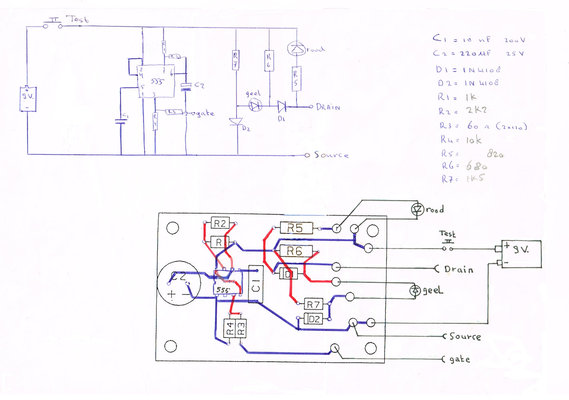 Test
R7
R6
rood
R5
555
C2
9V.
geel
D1
DRAIN
gate
D2
Source
C1 = 10 nF 200V
C2 = 220uF 25V
D1 = 1N4108
D2 = 1N4108
R1 = 1K
R2 = 2K2
R3 = 60
R4 = 10k
R5 = 820
R6 = 680
R7 = 1K5
R2
R5
rood
R
R6
Test
9V.
+
-
C2
+ -
555
C1
D1
Drain
geel
R7
D2
R4
R3
Source
gate